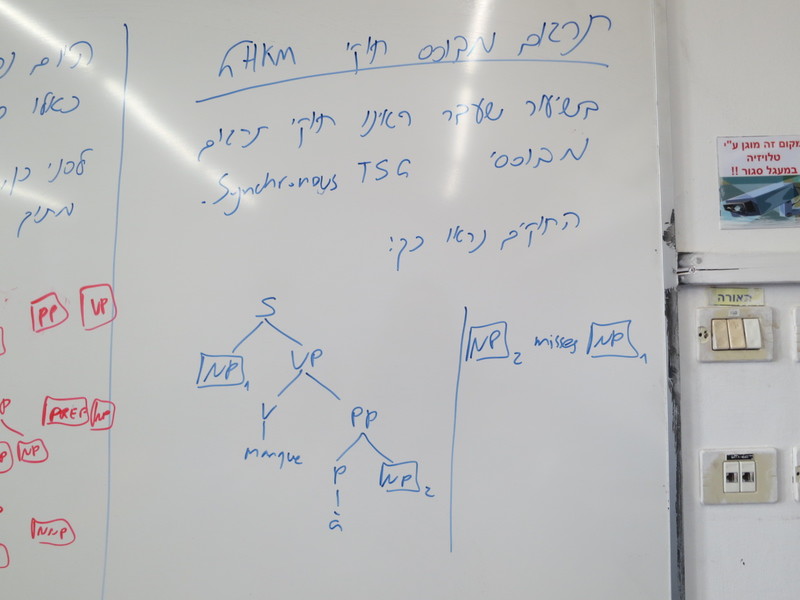 תרגום מבוסס חוקי GHKM
בשיעור שעבר ראינו חוקי תרגום
מבוססי Synchronous TSG.
החוקים נראו כך:
S
NP 1 VP
V PP
manque
P NP 2
à
NP 2 misses NP 1
היום
כאילו
לפני כן,
PP VP
PREP NP
NP
NNP
מקום זה מוגן ע"י
טלויזיה
במעגל סגור !!
תאורה